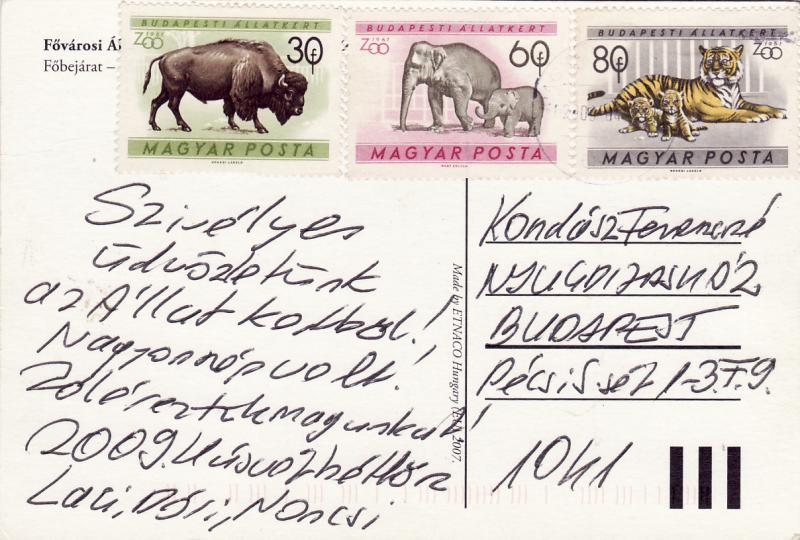 Fővárosi Ál
Főbejárat –
BUDAPESTI ÁLLATKERT
1961
Zoo
30f
MAGYAR POSTA
BUDAPESTI ÁLLATKERT
1961
Zoo
60f
MAGYAR POSTA
BUDAPESTI ÁLLATKERT
80f
1961
Zoo
MAGYAR POSTA
Szivélyes
üdvözletünk
az Állatkertből!
Nagyon szép volt.
Jól éreztük magunkat!
2009. Húsvét hétfőn
Laci, Dóri, Noncsi
Made by ETNACO Hungary 2007.
Kondász Ferencné
NYUGDIJASHÁZ
BUDAPEST
Pécsi S. sét. 1-3. F. 9.
1041